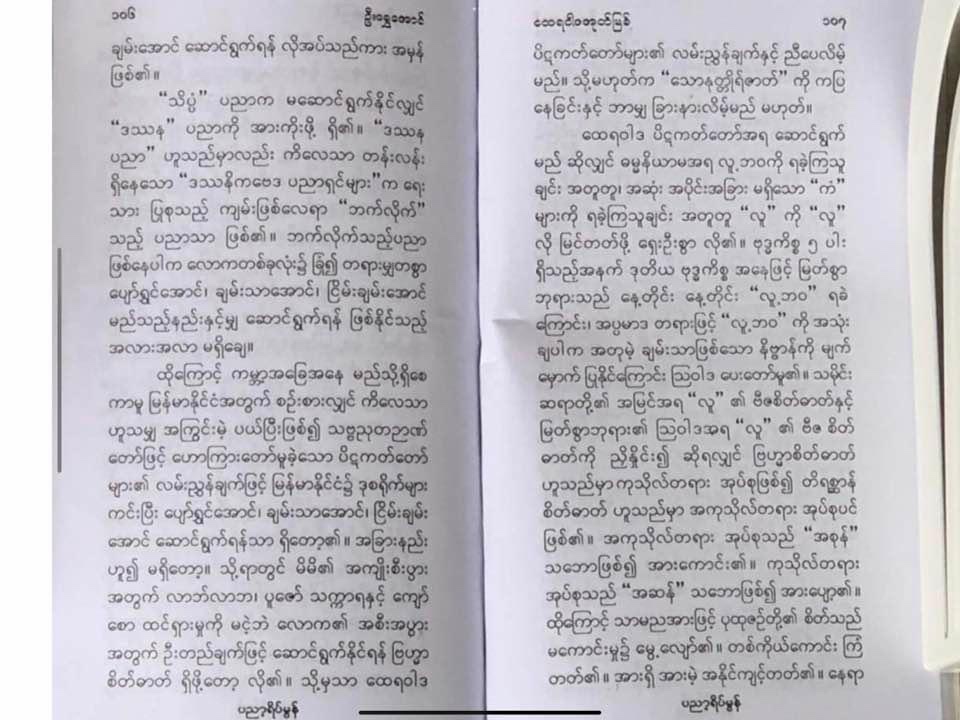 ၁၀၆ ဦးရွှေအောင်
ချမ်းအောင် ဆောင်ရွက်ရန် လိုအပ်သည်ကား အမှန်
ဖြစ်၏။
“သိပ္ပံ” ပညာက မဆောင်ရွက်နိုင်လျှင်
“ဒဿန” ပညာကို အားကိုးဖို့ ရှိ၏။ “ဒဿန
ပညာ” ဟူသည်မှာလည်း ကိလေသာ တန်းလန်း
ရှိနေသော “ဒဿနိကဗေဒ ပညာရှင်များ”က ရေး
သား ပြုစုသည့် ကျမ်းဖြစ်လေရာ “ဘက်လိုက်”
သည့် ပညာသာ ဖြစ်၏။ ဘက်လိုက်သည့်ပညာ
ဖြစ်နေပါက လောကတစ်ခုလုံး၌ ခြုံ၍ တရားမျှတစွာ
ပျော်ရွှင်အောင်၊ ချမ်းသာအောင်၊ ငြိမ်းချမ်းအောင်
မည်သည့်နည်းနှင့်မျှ ဆောင်ရွက်ရန် ဖြစ်နိုင်သည့်
အလားအလာ မရှိချေ။
ထို့ကြောင့် ကမ္ဘာ့အခြေအနေ မည်သို့ရှိစေ
ကာမူ မြန်မာနိုင်ငံအတွက် စဉ်းစားလျှင် ကိလေသာ
ဟူသမျှ အကြွင်းမဲ့ ပယ်ပြီးဖြစ်၍ သဗ္ဗညုတဉာဏ်
တော်ဖြင့် ဟောကြားတော်မူခဲ့သော ပိဋကတ်တော်
များ၏ လမ်းညွှန်ချက်ဖြင့် မြန်မာနိုင်ငံ၌ ဒုစရိုက်များ
ကင်းပြီး ပျော်ရွှင်အောင်၊ ချမ်းသာအောင်၊ ငြိမ်းချမ်း
အောင် ဆောင်ရွက်ရန်သာ ရှိတော့၏။ အခြားနည်း
ဟူ၍ မရှိတော့။ သို့ရာတွင် မိမိ၏ အကျိုးစီးပွား
အတွက် လာဘ်လာဘ၊ ပူဇော် သက္ကာရနှင့် ကျော်
စော ထင်ရှားမှုကို မငဲ့ဘဲ လောက၏ အစီးအပွား
အတွက် ဦးတည်ချက်ဖြင့် ဆောင်ရွက်နိုင်ရန် ဗြဟ္မာ
စိတ်ဓာတ် ရှိဖို့တော့ လို၏။ သို့မှသာ ထေရဝါဒ
ပညာ့ရိပ်မွန်
ထေရဝါဒအုတ်မြစ် ၁၀၇
ပိဋကတ်တော်များ၏ လမ်းညွှန်ချက်နှင့် ညီပေလိမ့်
မည်။ သို့မဟုတ်က “သောနုတ္တိုရ်ဇာတ်” ကို ကပြ
နေခြင်းနှင့် ဘာမျှ ခြားနားလိမ့်မည် မဟုတ်။
ထေရဝါဒ ပိဋကတ်တော်အရ ဆောင်ရွက်
မည် ဆိုလျှင် ဓမ္မနိယာမအရ လူ့ဘဝကို ရခဲ့ကြသူ
ချင်း အတူတူ၊ အဆုံး အပိုင်းအခြား မရှိသော “ကံ”
များကို ရခဲ့ကြသူချင်း အတူတူ “လူ” ကို “လူ”
လို မြင်တတ်ဖို့ ရှေးဦးစွာ လို၏။ ဗုဒ္ဓကိစ္စ ၅ ပါး
ရှိသည့်အနက် ဒုတိယ ဗုဒ္ဓကိစ္စ အနေဖြင့် မြတ်စွာ
ဘုရားသည် နေ့တိုင်း နေ့တိုင်း “လူ့ဘဝ” ရခဲ
ကြောင်း၊ အပ္ပမာဒ တရားဖြင့် “လူ့ဘဝ” ကို အသုံး
ချပါက အတုမဲ့ ချမ်းသာဖြစ်သော နိဗ္ဗာန်ကို မျက်
မှောက် ပြုနိုင်ကြောင်း ဩဝါဒ ပေးတော်မူ၏။ သမိုင်း
ဆရာတို့၏ အမြင်အရ “လူ” ၏ ဗီဇစိတ်ဓာတ်နှင့်
မြတ်စွာဘုရား၏ ဩဝါဒအရ “လူ” ၏ ဗီဇ စိတ်
ဓာတ်ကို ညှိနှိုင်း၍ ဆိုရလျှင် ဗြဟ္မာစိတ်ဓာတ်
ဟူသည်မှာ ကုသိုလ်တရား အုပ်စုဖြစ်၍ တိရစ္ဆာန်
စိတ်ဓာတ် ဟူသည်မှာ အကုသိုလ်တရား အုပ်စုပင်
ဖြစ်၏။ အကုသိုလ်တရား အုပ်စုသည် “အစုန်”
သဘောဖြစ်၍ အားကောင်း၏။ ကုသိုလ်တရား
အုပ်စုသည် “အဆန်” သဘောဖြစ်၍ အားပျော့၏။
ထို့ကြောင့် သာမညအားဖြင့် ပုထုဇဉ်တို့၏ စိတ်သည်
မကောင်းမှု၌ မွေ့လျော်၏။ တစ်ကိုယ်ကောင်း ကြံ
တတ်၏။ အားရှိ အားမဲ့ အနိုင်ကျင့်တတ်၏။ နေရာ
ပညာ့ရိပ်မွန်